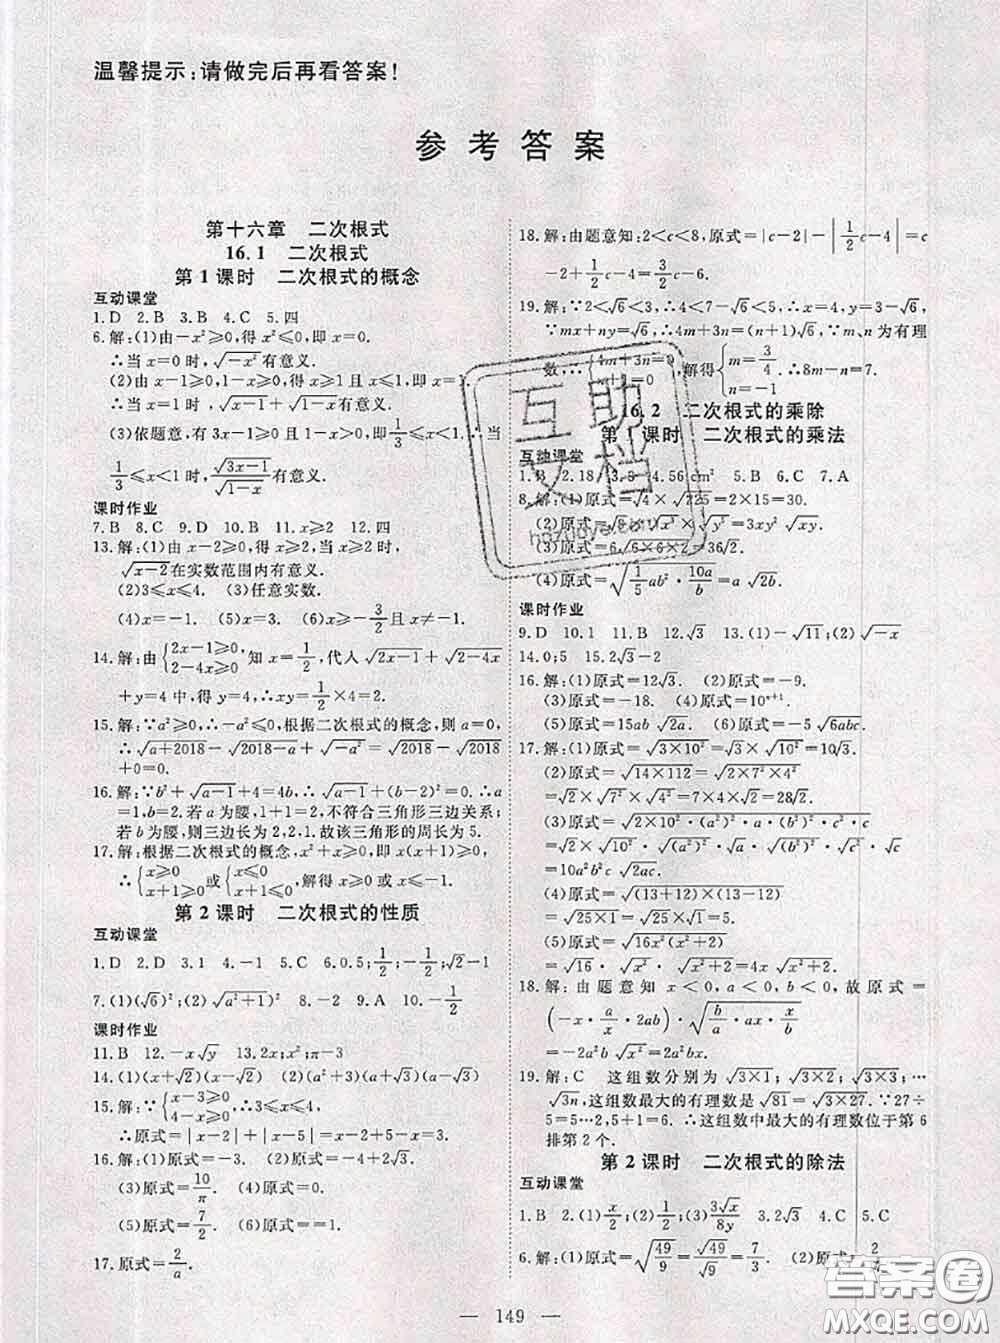 温馨提示:请做完后再看答案!
参考答案
第十六章 二次根式
16.1 二次根式
第1课时 二次根式的概念
互动课堂
1.D 2.B 3.B 4.C 5.四
6.解:(1)由-x²≥0,得x²≤0,即x=0.
∴当x=0时,√(-x²)有意义.
(2)由x-1≥0,1-x≥0,得x=1,即x=1.
∴当x=1时,√(x-1)+√(1-x)有意义.
(3)依题意,有3x-1≥0且1-x>0,即1/3≤x<1.∴当
1/3≤x<1时,√(3x-1)/√(1-x)有意义.
课时作业
7.B 8.C 9.D 10.B 11.x≥2 12.四
13.解:(1)由x-2≥0,得x≥2,∴当x≥2时,
√(x-2)在实数范围内有意义.
(2)3≤x≤4. (3)任意实数.
(4)x=-1. (5)x≤1/2且x≠-4.
14.解:由{2x-1≥0 2-4x≥0 知x=1/2,代人√(2x-1)+√(2-4x)
+y=4中,得y=4,∴xy=1/2×4=2.
15.解:∵a²≥0,∴-a²≤0,根据二次根式的概念,则a=0.
∴√(a+2018)-√(2018-a)+√(-a²)=√2018-√2018
+0=0.
16.解:∵b²+√(a-1)+4=4b,∴√(a-1)+(b-2)²=0.∴a
=1,b=2.若a为腰,1+1=2,不符合三角形三边关系;
若b为腰,则三边长为2,2,1.故该三角形的周长为5.
17.解:根据二次根式的概念,x²+x≥0,即x(x+1)≥0,
∴{x≥0 x+1≥0 或{x≤0 x+1≤0,解得x≥0或x≤-1.
第2课时 二次根式的性质
互动课堂
1.D 2.D 3.1 4.-1 5.C 6.0.5;1/2;-1/2;√2-1
7.(1)(√6)²;(2)(√(a²+1))² 8.-2 9.A 10.-1/2
课时作业
11.B 12.-x√y 13.2x;x²;π-3
14.(1)(x+√2)(x-√2) (2)(a²+3)(a+√3)(a-√3)
15.解:∵{x-3≥0 4-x≥0,∴3≤x≤4.
∴原式=|x-2|+|x-5|=x-2+5-x=3.
16.解:(1)原式=-3. (2)原式=-4+2=-2.
(3)原式=10/π. (4)原式=0.
(5)原式=7/2. (6)原式=1.
17.原式=2/a.
18.解:由题意知:2<c<8,原式=|c-2|-|1/2c-4|=c
-2+1/2c-4=3/2c-6.
19.解:∵2<√6<3,∴4<7-√6<5,∴x=4,y=3-√6,
∵mx+ny=√6,∴4m+3n=(n+1)√6.∵m、n为有理
数,∴{4m+3n=0 n+1=0,解得{m=3/4 n=-1.∴8m-n=7.
16.2 二次根式的乘除
第1课时 二次根式的乘法
互动课堂
1.B 2.18 4.56 cm² 5.B 6.C 7.A
8.解:(1)原式=√4×√225=2×15=30.
3xy²√(xy).
(3)原式=6√(6×6×2)=36√2.
(4)原式=√(1/5ab²·10a/b)=a√(2b).
课时作业
9.D 10.1 11.B 12.√3 13.(1)-√11;(2)√(-x)
14.0;5 15.2√3-2
16.解:(1)原式=12√3. (2)原式=-9.
(3)原式=-18. (4)原式=10ⁿ⁺¹.
(5)原式=15ab√(2a). (6)原式=-5√(6abc).
17.解:(1)原式=√(3×10²)=√3×√(10²)=10√3.
(2)原式=√(14×112)=√(2×7²×4²)
=√2×√(7²)×√(4²)=7×4×√2=28√2.
(3)原式=√(2×10²·(a²)²·a·(b²)²·c²·c)
=√2×√(10²)·√((a²)²)·√a·√((b²)²)·√(c²)·√c
=10a²b²c√(2ac).
(4)原式=√((13+12)×(13-12))
=√(25×1)=√25×√1=5.
(5)原式=√(16x²(x²+2))
=√16·√(x²)·√(x²+2)=4x√(x²+2).
18.解:由题意知x<0,a<0,b<0,故原式=
(-x·a/x·2ab)·√(b/a·ax·x/b)
=-2a²b√(x²)=2a²bx.
19.解:C 这组数分别为√(3×1);√(3×2);√(3×3);…
√(3n),这组数中最大的有理数是√81=√(3×27).∵27÷
5=5…2,5+1=6,∴这组数中最大的有理数位于第6
排第2个.
第2课时 二次根式的除法
互动课堂
1.B 2.(1)x/2;(2)1/2;(3)3√x/8y 3.2√3 4.C 5.C
6.解:(1)原式=√(49/9)=√49/√9=7/3.
— 149 —
互助文档
答案圈
MXQE.COM